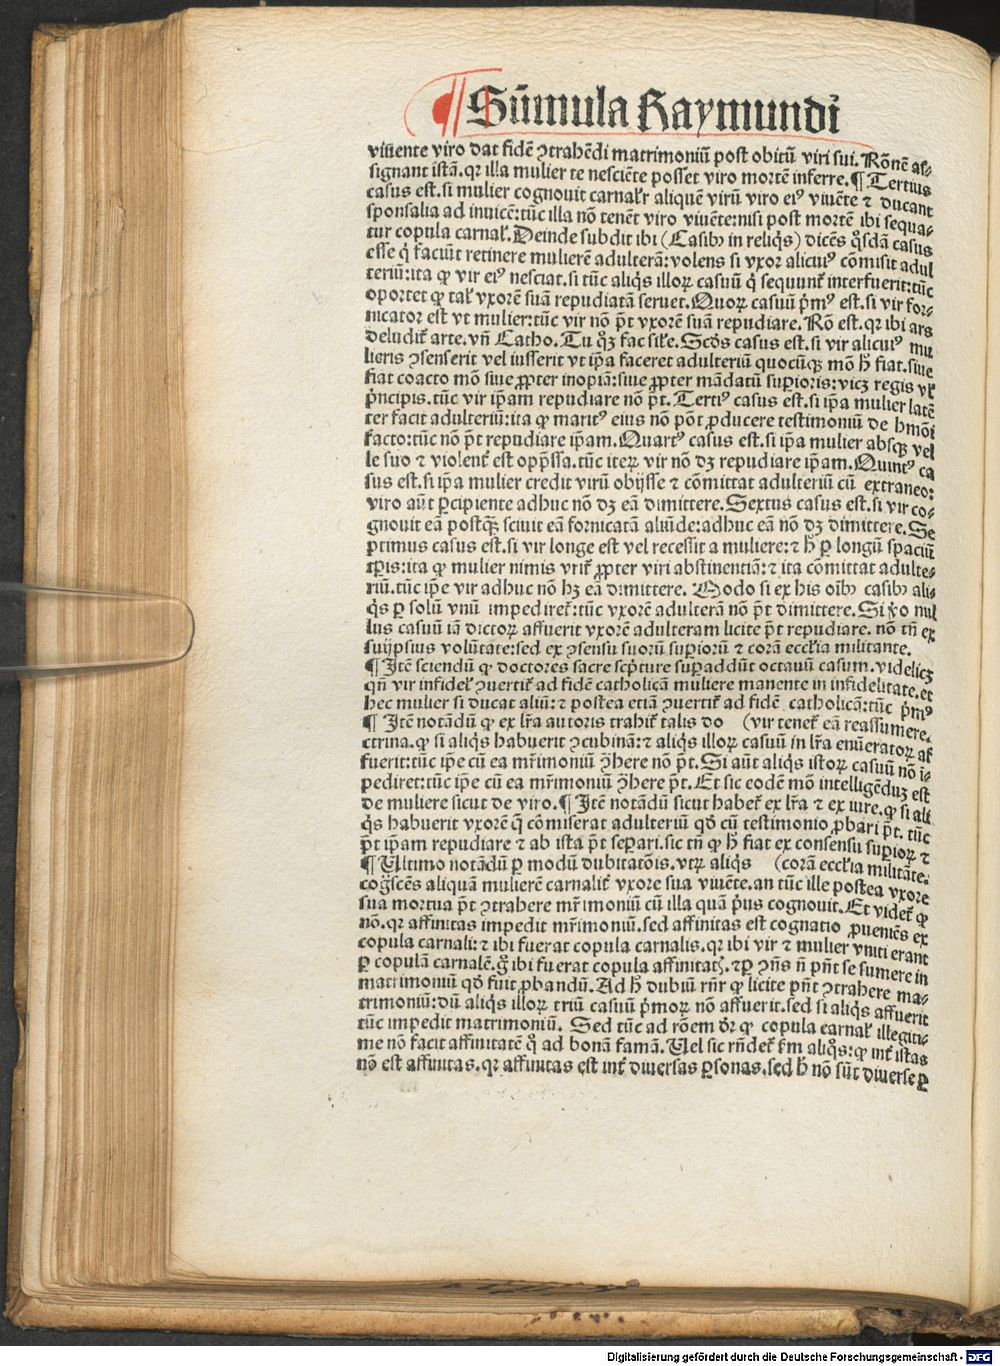 ¶ Sūmula Raymundi
viuente viro dat fidē ꝯtrahēdi matrimoniū post obitū viri sui. Rōnē as⸗
signant istā. qr illa mulier te nesciēte posset viro mortē inferre. ¶ Tertius
casus est. si mulier cognouit carnalr̄ aliquē virū viro eiꝰ viuēte ⁊ ducant
sponsalia ad inuicē: tūc illa nō tenet̄ viro viuēte: nisi post mortē ibi sequa⸗
tur copula carnal̄. Deinde subdit ibi (Casibꝫ in reliqͥs) dicēs qͦsdā casus
esse qͥ faciūt retinere mulierē adulterā: volens si vxor alicuiꝰ cōmisit adul
teriū: ita ꝙ vir eiꝰ nesciat. si tūc aliqͥs illoꝝ casuū qͥ sequunt̄ interfuerit: tūc
oportet ꝙ tal̄ vxorē suā repudiatā seruet. Quoꝝ casuū pͥmꝰ est. si vir for⸗
nicator est vt mulier: tūc vir nō pōt vxorē suā repudiare. Rō est. qr ibi ars
deludit̄ arte. vn̄ Catho. Tu qͦꝫ fac sil̄e. Scd̄s casus est. si vir alicuiꝰ mu
lieris ꝯsenserit vel iusserit vt ip̄a faceret adulteriū quocūqꝫ mō hͦ fiat. siue
fiat coacto mō siue ꝓpter inopiā: siue ꝓpter mādatū suꝑioris: vicꝫ regis vl̄
pͥncipis. tūc vir ip̄am repudiare nō pōt. Tertiꝰ casus est. si ip̄a mulier latē
ter facit adulteriū: ita ꝙ maritꝰ eius nō pōt ꝓducere testimoniū de hmōi
facto: tūc nō pōt repudiare ip̄am. Quartꝰ casus est. si ip̄a mulier absqꝫ vel
le suo ⁊ violent̄ est opp̄ssa. tūc iteꝝ vir nō dꝫ repudiare ip̄am. Quintꝰ ca
sus est. si ip̄a mulier credit virū obijsse ⁊ cōmittat adulteriū cū extraneo:
viro aūt ꝑcipiente adhuc nō dꝫ eā dimittere. Sextus casus est. si vir co⸗
gnouit eā postqꝫ sciuit eā fornicatā aliūde: adhuc eā nō dꝫ dimittere. Se
ptimus casus est. si vir longe est vel recessit a muliere: ⁊ hͦ ꝑ longū spaciū
tꝑis: ita ꝙ mulier nimis vrit̄ ꝓpter viri abstinentiā: ⁊ ita cōmittat adulte⸗
riū. tūc ip̄e vir adhuc nō hꝫ eā dimittere. Modo si ex his oībꝫ casibꝫ ali⸗
qͥs ꝑ solū vnū impediret̄: tūc vxorē adulterā nō pōt dimittere. Si ꝟo nul
lus casuū iā dictoꝝ affuerit vxorē adulteram licite pōt repudiare. nō tn̄ ex
suijpsius volūtate: sed ex ꝯsensu suorū suꝑiorū ⁊ corā eccl̄ia militante.
¶ Itē sciendū ꝙ doctores sacre scͥpture suꝑaddūt octauū casum. videlicꝫ
qn̄ vir infidel̄ ꝯuertit̄ ad fidē catholicā muliere manente in infidelitate. et
hec mulier si ducat aliū: ⁊ postea etiā ꝯuertit̄ ad fidē catholicā: tūc pͥmꝰ
¶ Itē notādū ꝙ ex lr̄a autoris trahit̄ talis do (vir tenet̄ eā reassumere.
ctrina. ꝙ si aliqͥs habuerit ꝯcubinā: ⁊ aliqͥs illoꝝ casuū in lr̄a enūeratoꝝ af
fuerit: tūc ip̄e cū ea mr̄imoniū ꝯhere nō pōt. Si aūt aliqͥs istoꝝ casuū nō i⸗
pediret: tūc ip̄e cū ea mr̄imoniū ꝯhere pōt. Et sic eodē mō intelligēduꝫ est
de muliere sicut de viro. ¶ Itē notādū sicut habet̄ ex lr̄a ⁊ ex iure. ꝙ si ali
qͥs habuerit vxorē q̄ cōmiserat adulteriū qd̄ cū testimonio ꝓbari pōt. tūc
pōt ip̄am repudiare ⁊ ab ista pōt seꝑari. sic tn̄ ꝙ hͦ fiat ex consensu suꝑioꝝ ⁊
¶ Ultimo notādū ꝑ modū dubitatōis. vtꝝ aliqͥs (corā eccl̄ia militāte.
cogͦscēs aliquā mulierē carnalit̄ vxore sua viuēte. an tūc ille postea vxore
sua mortua pōt ꝯtrahere mr̄imoniū cū illa quā pͥus cognouit. Et videt̄ ꝙ
nō. qr affinitas impedit mr̄imoniū. sed affinitas est cognatio ꝓueniēs ex
copula carnali: ⁊ ibi fuerat copula carnalis. qr ibi vir ⁊ mulier vniti erant
ꝑ copulā carnalē. gͦ ibi fuerat copula affinitatꝭ. ⁊ ꝑ ꝯn̄s n̄ pn̄t se sumere in
matrimoniū qd̄ fuit ꝓbandū. Ad hͦ dubiū rn̄r ꝙ licite pn̄t ꝯtrahere ma⸗
trimoniū: dū aliqͥs illoꝝ triū casuū pͥmoꝝ nō affuerit. sed si aliqͥs affuerit
tūc impedit matrimoniū. Sed tūc ad rōem dr̄ ꝙ copula carnal̄ illegiti⸗
me nō facit affinitatē qͦ ad bonā famā. Uel sic rn̄det̄ fm aliqͦs: ꝙ int̄ istas
nō est affinitas. qr affinitas est int̄ diuersas ꝑsonas. sed hͥ nō sūt diuerse ꝑ
Digitalisierung gefördert durch die Deutsche Forschungsgemeinschaft - DFG